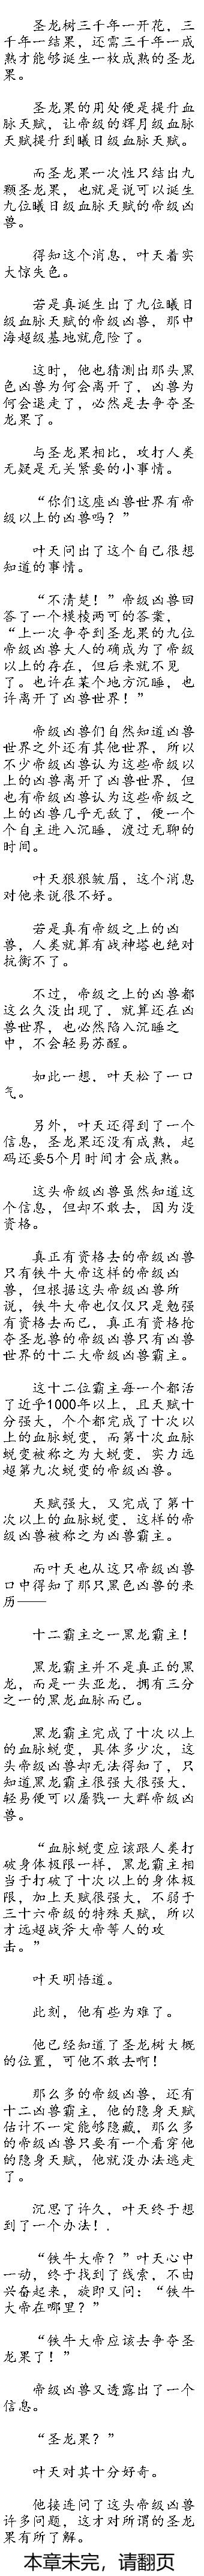 圣龙树三千年一开花，三
千年一结果，还需三千年一成
熟才能够诞生一枚成熟的圣龙
果。
圣龙果的用处便是提升血
脉天赋，让帝级的辉月级血脉
天赋提升到曦日级血脉天赋。
而圣龙果一次性只结出九
颗圣龙果，也就是说可以诞生
九位曦日级血脉天赋的帝级凶
兽。
得知这个消息，叶天着实
大惊失色。
若是真诞生出了九位曦日
级血脉天赋的帝级凶兽，那中
海超级基地就危险了。
这时，他也猜测出那头黑
色凶兽为何会离开了，凶兽为
何会退走了，必然是去争夺圣
龙果了。
与圣龙果相比，攻打人类
无疑是无关紧要的小事情。
“你们这座凶兽世界有帝
级以上的凶兽吗？”
叶天问出了这个自己很想
知道的事情。
“不清楚！”帝级凶兽回
答了一个模棱两可的答案，
“上一次争夺到圣龙果的九位
帝级凶兽大人的确成为了帝级
以上的存在，但后来就不见
了。也许在某个地方沉睡，也
许离开了凶兽世界！”
帝级凶兽们自然知道凶兽
世界之外还有其他世界，所以
不少帝级凶兽认为这些帝级以
上的凶兽离开了凶兽世界，但
也有帝级凶兽认为这些帝级之
上的凶兽几乎无敌了，便一个
个自主进入沉睡，渡过无聊的
时间。
叶天狠狠皱眉，这个消息
对他来说很不好。
若是真有帝级之上的凶
兽，人类就算有战神塔也绝对
抗衡不了。
不过，帝级之上的凶兽都
这么久没出现了，就算还在凶
兽世界，也必然陷入沉睡之
中，不会轻易苏醒。
如此一想，叶天松了一口
气。
另外，叶天还得到了一个
信息，圣龙果还没有成熟，起
码还要5个月时间才会成熟。
这头帝级凶兽虽然知道这
个信息，但却不敢去，因为没
资格。
真正有资格去的帝级凶兽
只有铁牛大帝这样的帝级凶
兽，但根据这头帝级凶兽所
说，铁牛大帝也仅仅只是勉强
有资格去而已，真正有资格抢
夺圣龙兽的帝级凶兽只有凶兽
世界的十二大帝级凶兽霸主。
这十二位霸主每一个都活
了近乎1000年以上，且天赋十
分强大，个个都完成了十次以
上的血脉蜕变，而第十次血脉
蜕变被称之为大蜕变，实力远
超第九次蜕变的帝级凶兽。
天赋强大，又完成了第十
次以上的血脉蜕变，这样的帝
级凶兽被称之为凶兽霸主。
而叶天也从这只帝级凶兽
口中得知了那只黑色凶兽的来
历——
十二霸主之一黑龙霸主！
黑龙霸主并不是真正的黑
龙，而是一头亚龙，拥有三分
之一的黑龙血脉而已。
黑龙霸主完成了十次以上
的血脉蜕变，具体多少次，这
头帝级凶兽却无法得知了，只
知道黑龙霸主很强大很强大，
轻易便可以屠戮一大群帝级凶
兽。
“血脉蜕变应该跟人类打
破身体极限一样，黑龙霸主相
当于打破了十次以上的身体极
限，加上天赋很强大，不弱于
三十六帝级的特殊天赋，所以
才远超战斧大帝等人的攻
击。”
叶天明悟道。
此刻，他有些为难了。
他已经知道了圣龙树大概
的位置，可他不敢去啊！
那么多的帝级凶兽，还有
十二凶兽霸主，他的隐身天赋
估计不一定能够隐藏，那么多
的帝级凶兽只要有一个看穿他
的隐身天赋，他就没办法逃走
了。
沉思了许久，叶天终于想
到了一个办法！.
“铁牛大帝？”叶天心中
一动，终于找到了线索，不由
兴奋起来，旋即又问：“铁牛
大帝在哪里？”
“铁牛大帝应该去争夺圣
龙果了！”
帝级凶兽又透露出了一个
信息。
“圣龙果？”
叶天对其十分好奇。
他接连问了这头帝级凶兽
许多问题，这才对所谓的圣龙
果有所了解。
本章未完，请翻页